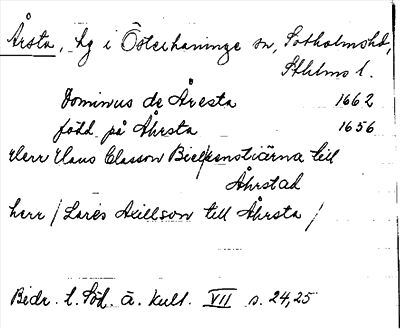 Årsta, hg i Österhaninge sn, Sotholms hd,
Sthlms l.
Dominus de Åresta 1662
född på Åhrsta 1656
Herr Claus Classon Bielkenstiärna till
Åhrstad
herr / Lares Axillson till Åhrsta /
Bidr. t. Söd. ä. kult. VII s. 24,25